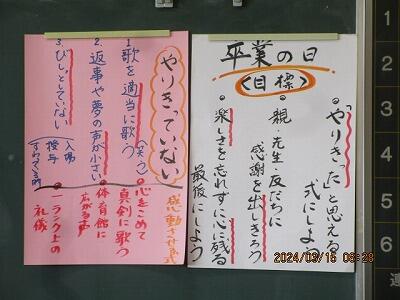 卒業の日
〈目標〉
●「やりきった」と思える
式にしよう
●親・先生・友だちに
感謝を出しきろう
●楽しさを忘れずに心に残る
最後にしよう
やりきっていない
感動させる式
1. 歌を適当に歌う
(笑う)
●心をこめて
真剣に歌う
2. 返事や夢の声が小さい
●体育館に
広がる声
3. びしっとしていない
入場
授与
●一ランク上の
礼儀
2024/03/15 08:28
1
2
3
4
5
6
連